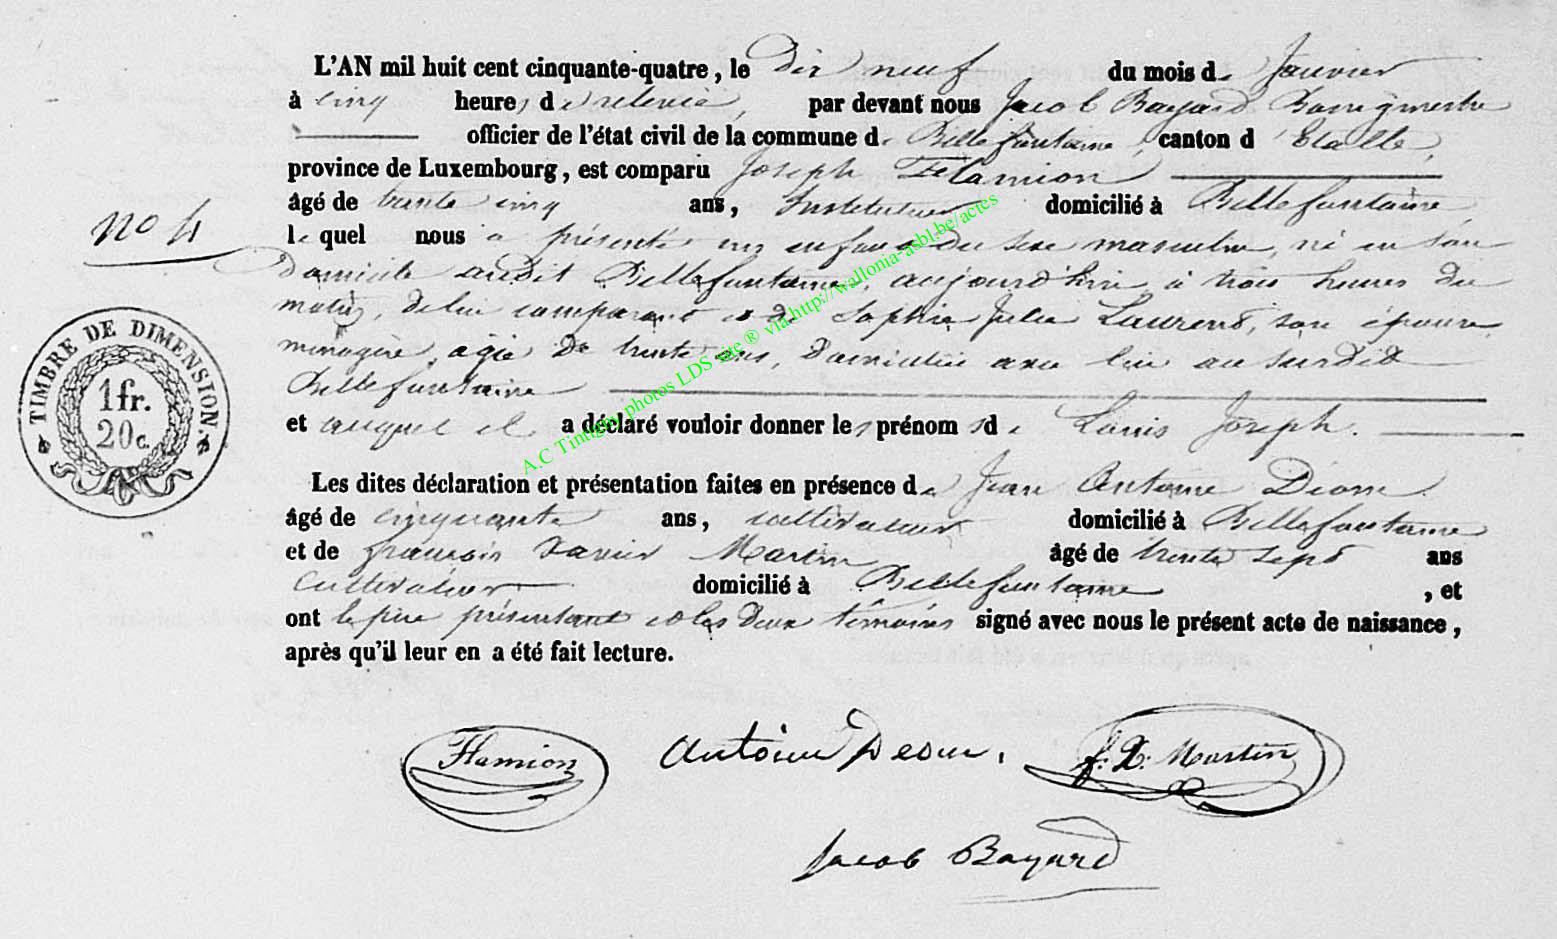 L'AN mil huit cent cinquante-quatre, le dix neuf du mois de Janvier
à cinq heures de relevée, par devant nous Jacob Bayard Bourgmestre
officier de l'état civil de la commune de Bellefontaine, canton d'Etalle,
province de Luxembourg, est comparu Joseph Flamion
âgé de trente cinq ans, Instituteur domicilié à Bellefontaine,
No 4
le quel nous a présenté un enfant du sexe masculin, né en son
domicile audit Bellefontaine, aujourd'hui à trois heures du
matin, de lui comparant et de Sophie Julie Laurent, son épouse,
ménagère, agée de trente ans, domiciliée avec lui au susdit
Bellefontaine
et auquel il a déclaré vouloir donner les prénoms de Louis Joseph.
TIMBRE DE DIMENSION
1 fr.
20 c.
Les dites déclaration et présentation faites en présence de Jean Antoine Dion
âgé de cinquante ans, cultivateur domicilié à Bellefontaine
et de françois Xavier Martin âgé de trente sept ans
cultivateur domicilié à Bellefontaine, et
ont le père présentant et les deux témoins signé avec nous le présent acte de naissance,
après qu'il leur en a été fait lecture.
Flamion Antoine f. X. Martin
Jacob Bayard
A.C Tintigny photos LDS site ® via http://wallonia-asbl.be/actes